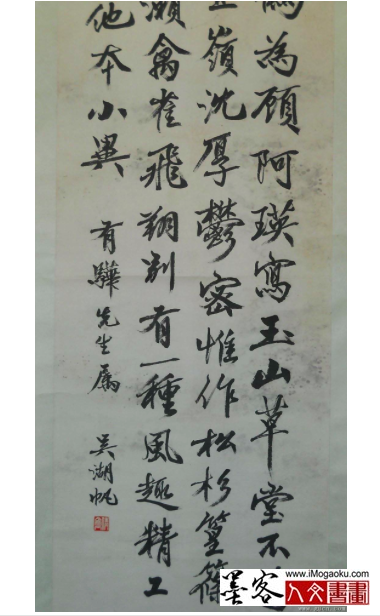 為顧阿瑛寫玉山草堂不
嶺沈厚鬱密惟作松杉篁篠
瀨禽雀飛翔別有一種風趣精工
他本小異
有驊先生属
吳湖帆
墨客
www.iMogaoku.com
人文書畫